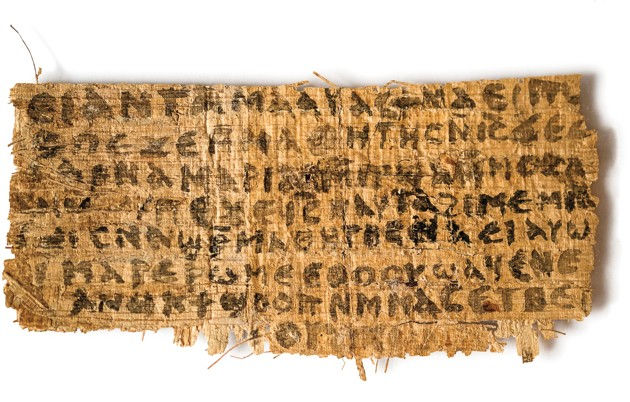 ⲁⲉⲓ ⲁⲛ ⲧⲁⲙⲁⲁⲩ ⲁⲥϯ ⲛⲁⲉⲓ ⲡⲱ
ⲡⲉϫⲉ ⲙⲙⲁⲑⲏⲧⲏⲥ ⲛⲓⲥ ϫⲉ ⲥ
ⲁⲣⲛⲁ ⲙⲁⲣⲓⲁⲙ ⲙⲡϣⲁ ⲙⲙⲟⲥ ⲁ
ⲡⲉϫⲉ ⲓⲥ ⲛⲁⲩ ⲧⲁϩⲓⲙⲉ ⲙⲛ
ⲥⲛⲁϣⲣⲙⲁⲑⲏⲧⲏⲥ ⲛⲁⲉⲓ ⲁⲩⲱ
ⲓ ⲙⲁⲣⲉⲣⲱⲙⲉ ⲉⲑⲟⲟⲩ ϣⲁϥⲉ ⲛⲉ
ⲁⲛⲟⲕ ϯϣⲟⲟⲡ ⲛⲙⲙⲁⲥ ⲉⲧⲃⲉ ⲡ